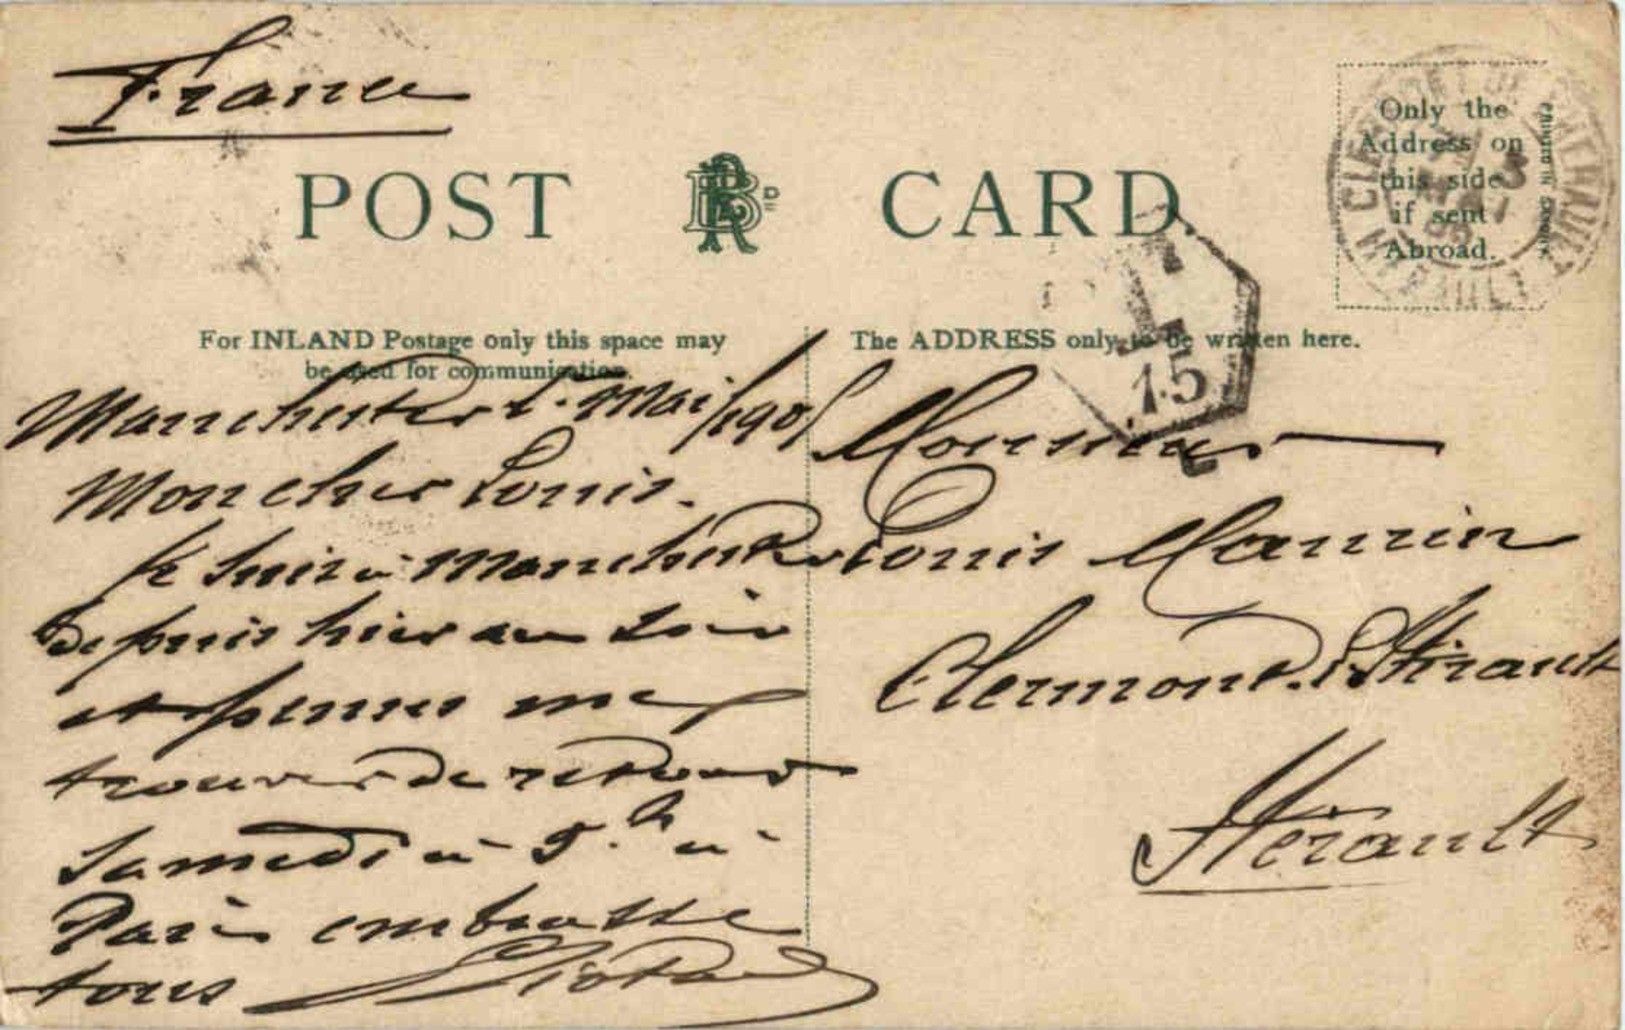 France
POST CARD
Only the
Address on
this side
if sent
Abroad.
For INLAND Postage only this space may
be used for communication.
The ADDRESS only to be written here.
T
15
Manchester Mai/190
Mon cher Louis.
Je suis à Manchester
depuis hier au soir
et penser me
trouver de retour
Samedi à 5.h à
Paris embrasse
tous
Monsieur
Louis Maurin
Clermont. l'Hérault
Hérault